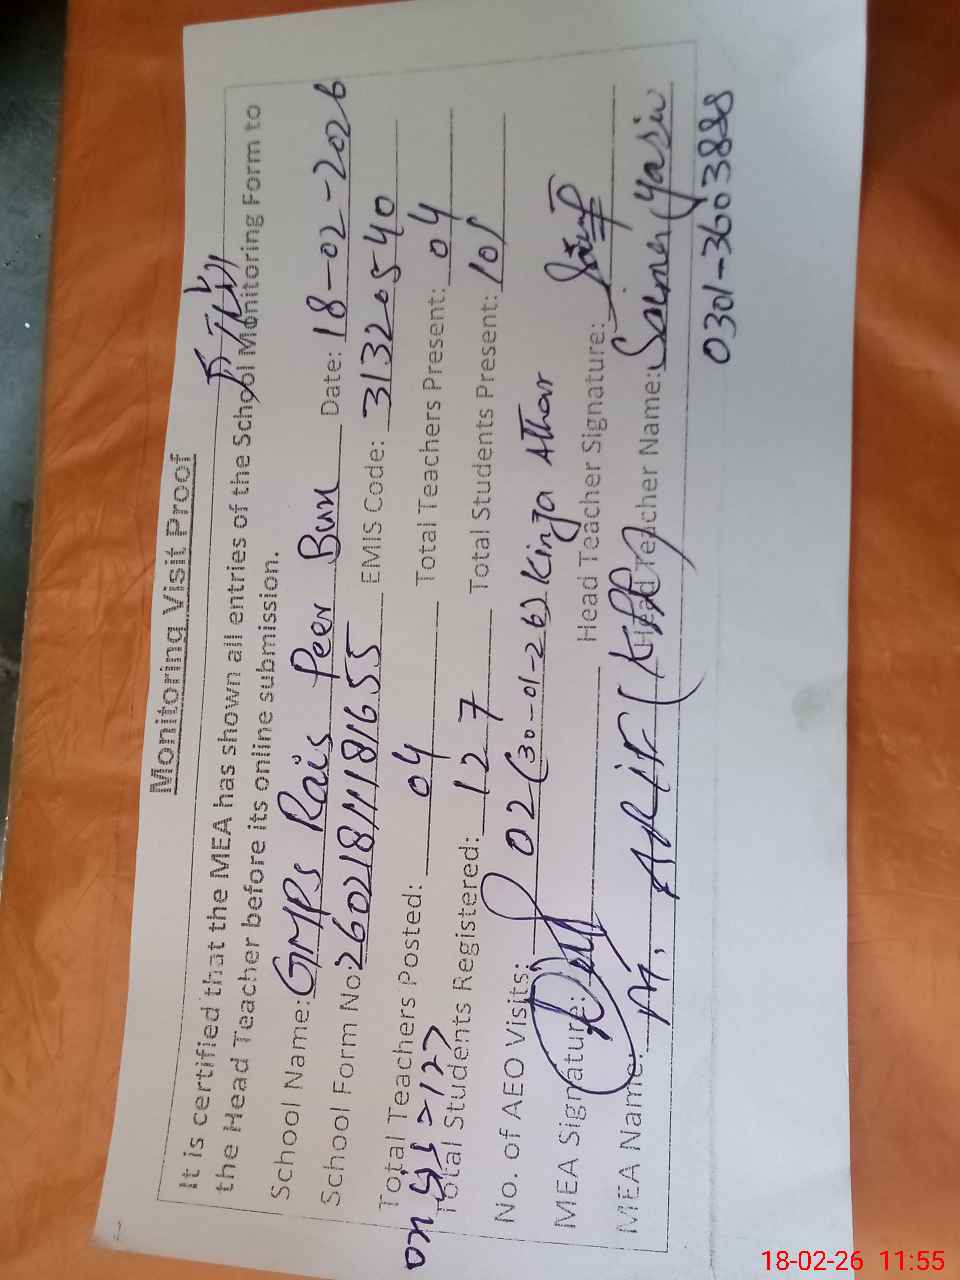 Monitoring Visit Proof
It is certified that the MEA has shown all entries of the School Monitoring Form to
the Head Teacher before its online submission.
School Name: GMPS Rais Peer Bux Date: 18-02-2026
School Form No: 260218111816 55 EMIS Code: 31320540
Total Teachers Posted: 04 Total Teachers Present: 04
on sis = 127
Total Students Registered: 127 Total Students Present: 101
No. of AEO Visits: 02 (30-01-26) Kinza Athar
MEA Signature: Head Teacher Signature:
MEA Name: M. ARIF Head Teacher Name: Saima Yasin
0301-3603888
18-02-26 11:55